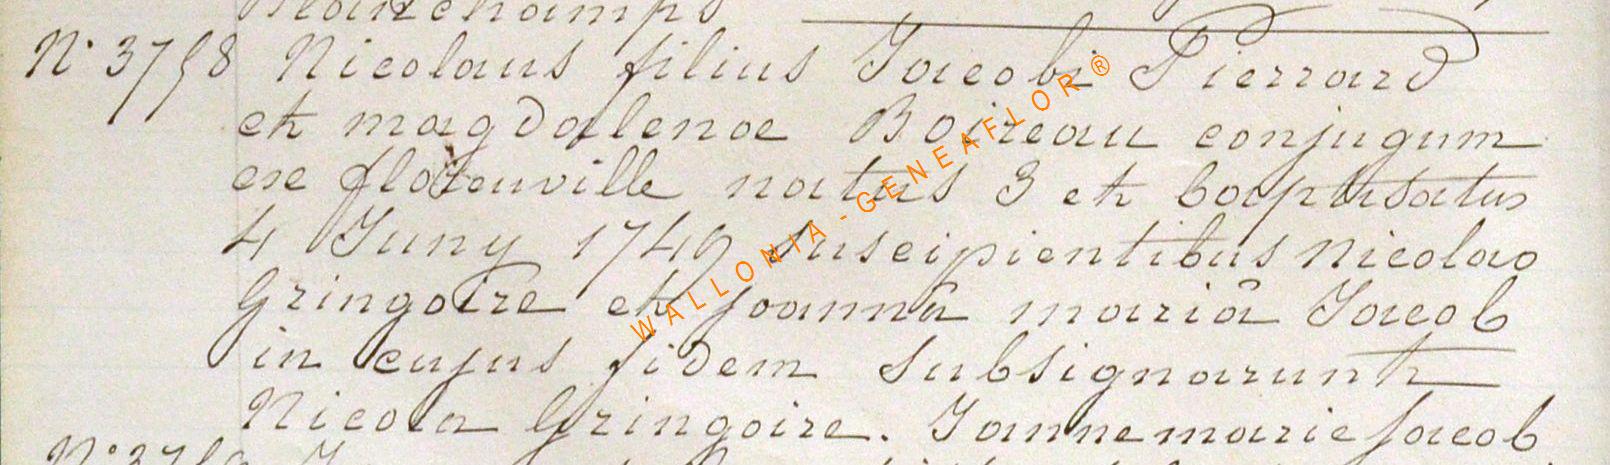 Blanchamps
N° 3758 Nicolaus filius Jacobi Pierrard
et magdalenae Boireau conjugum
ex florenville natus 3 et baptisatus
4 Juny 1749 suscipientibus Nicolao
Gringoire et joannâ mariâ Jacob
in cujus fidem subsignarunt
Nicola Gringoire. Jannemarie jacob
WALLONIA-GENEAFLOR®